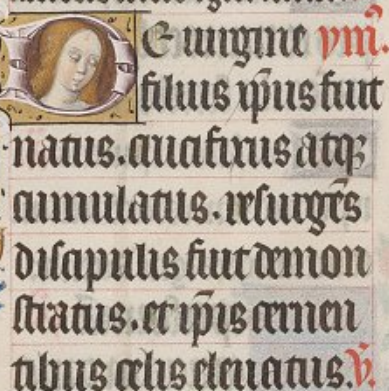 De uirgine ym̄.
filius xp̄us fuit
natus. crucifixus atqꝫ
tumulatus. resurgēs
discipulis fuit demon
stratus. et ip̄is cernen
tibus celis eleuatus. V̄